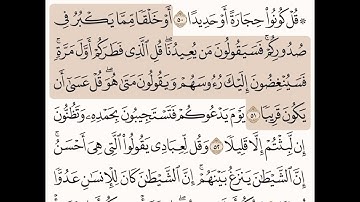 ۞ قُلْ كُونُوا۟ حِجَارَةً أَوْ حَدِيدًا ۝٥٠ أَوْ خَلْقًا مِّمَّا يَكْبُرُ فِى
صُدُورِكُمْ ۚ فَسَيَقُولُونَ مَن يُعِيدُنَا ۖ قُلِ ٱلَّذِى فَطَرَكُمْ أَوَّلَ مَرَّةٍ ۚ
فَسَيُنْغِضُونَ إِلَيْكَ رُءُوسَهُمْ وَيَقُولُونَ مَتَىٰ هُوَ ۖ قُلْ عَسَىٰٓ أَن
يَكُونَ قَرِيبًا ۝٥١ يَوْمَ يَدْعُوكُمْ فَتَسْتَجِيبُونَ بِحَمْدِهِۦ وَتَظُنُّونَ
إِن لَّبِثْتُمْ إِلَّا قَلِيلًا ۝٥٢ وَقُل لِّعِبَادِى يَقُولُوا۟ ٱلَّتِى هِىَ أَحْسَنُ ۚ
إِنَّ ٱلشَّيْطَٰنَ يَنزَغُ بَيْنَهُمْ ۚ إِنَّ ٱلشَّيْطَٰنَ كَانَ لِلْإِنسَٰنِ عَدُوًّا